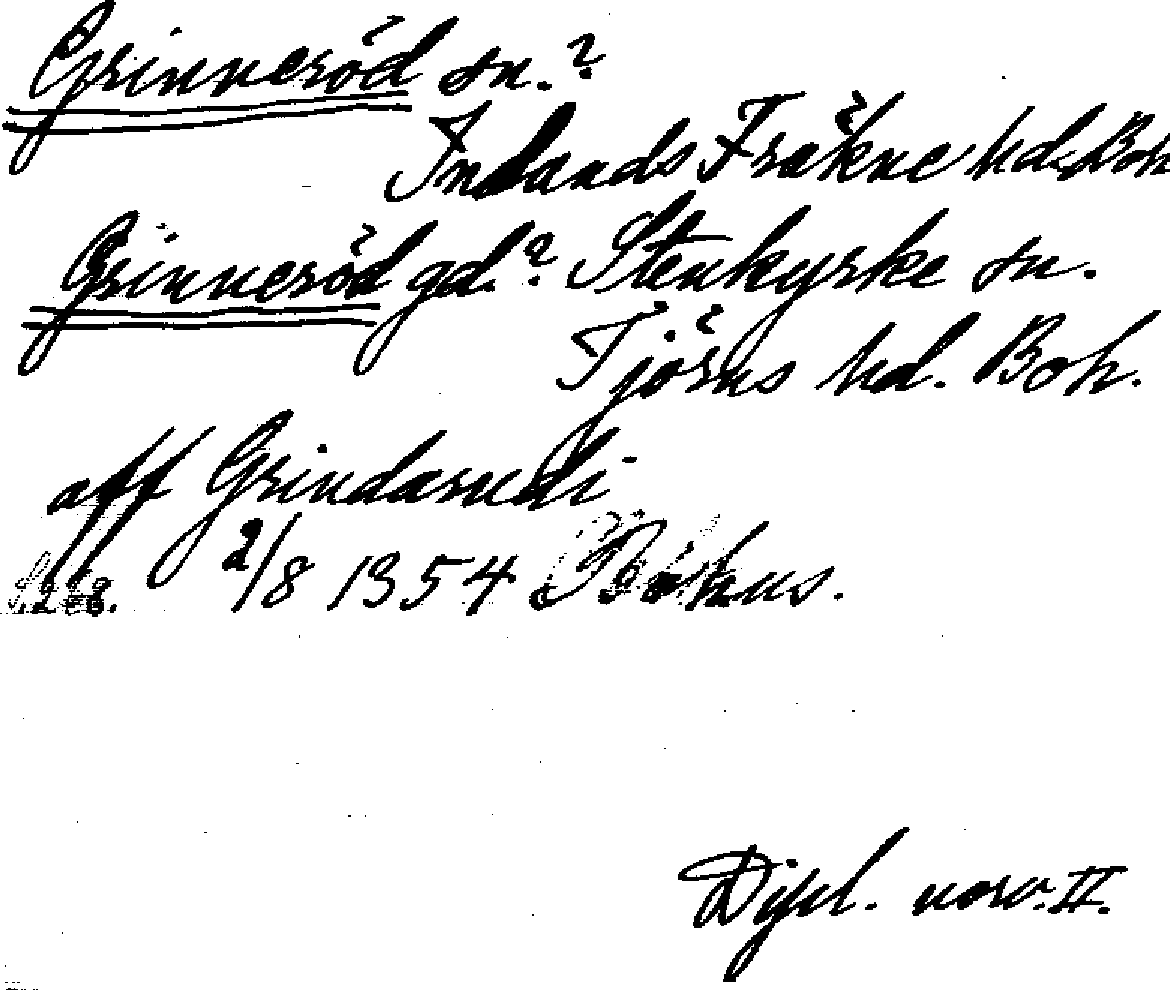 Grinneröd sn.?
Inlands Fräkne hd. Boh
Grinneröd gd.? Stenkyrke sn.
Tjörns hd. Boh.
aff Grindarudi
S. 248. 2/8 1354 Bohus.
Dipl. norv. II.